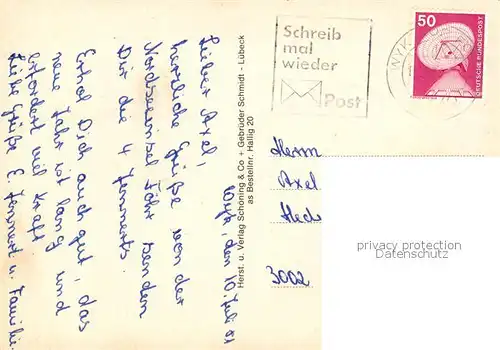 Wyk, den 10. Juli 81
Lieber Axel,
herzliche Grüße von der
Nordseeinsel Föhr senden
Dir die 4 Jennerts.
Erhol Dich auch gut, das
neue Jahr ist lang und
erfordert viel Kraft
Liebe Grüße E. Jennert u. Familie
Herst. u. Verlag Schöning & Co + Gebrüder Schmidt - Lübeck
as Bestellnr. Hallig 20
Schreib
mal
wieder
Post
WYK
50
DEUTSCHE BUNDESPOST
Herrn
Axel
Heck
3002
privacy protection
VDMedien24.de